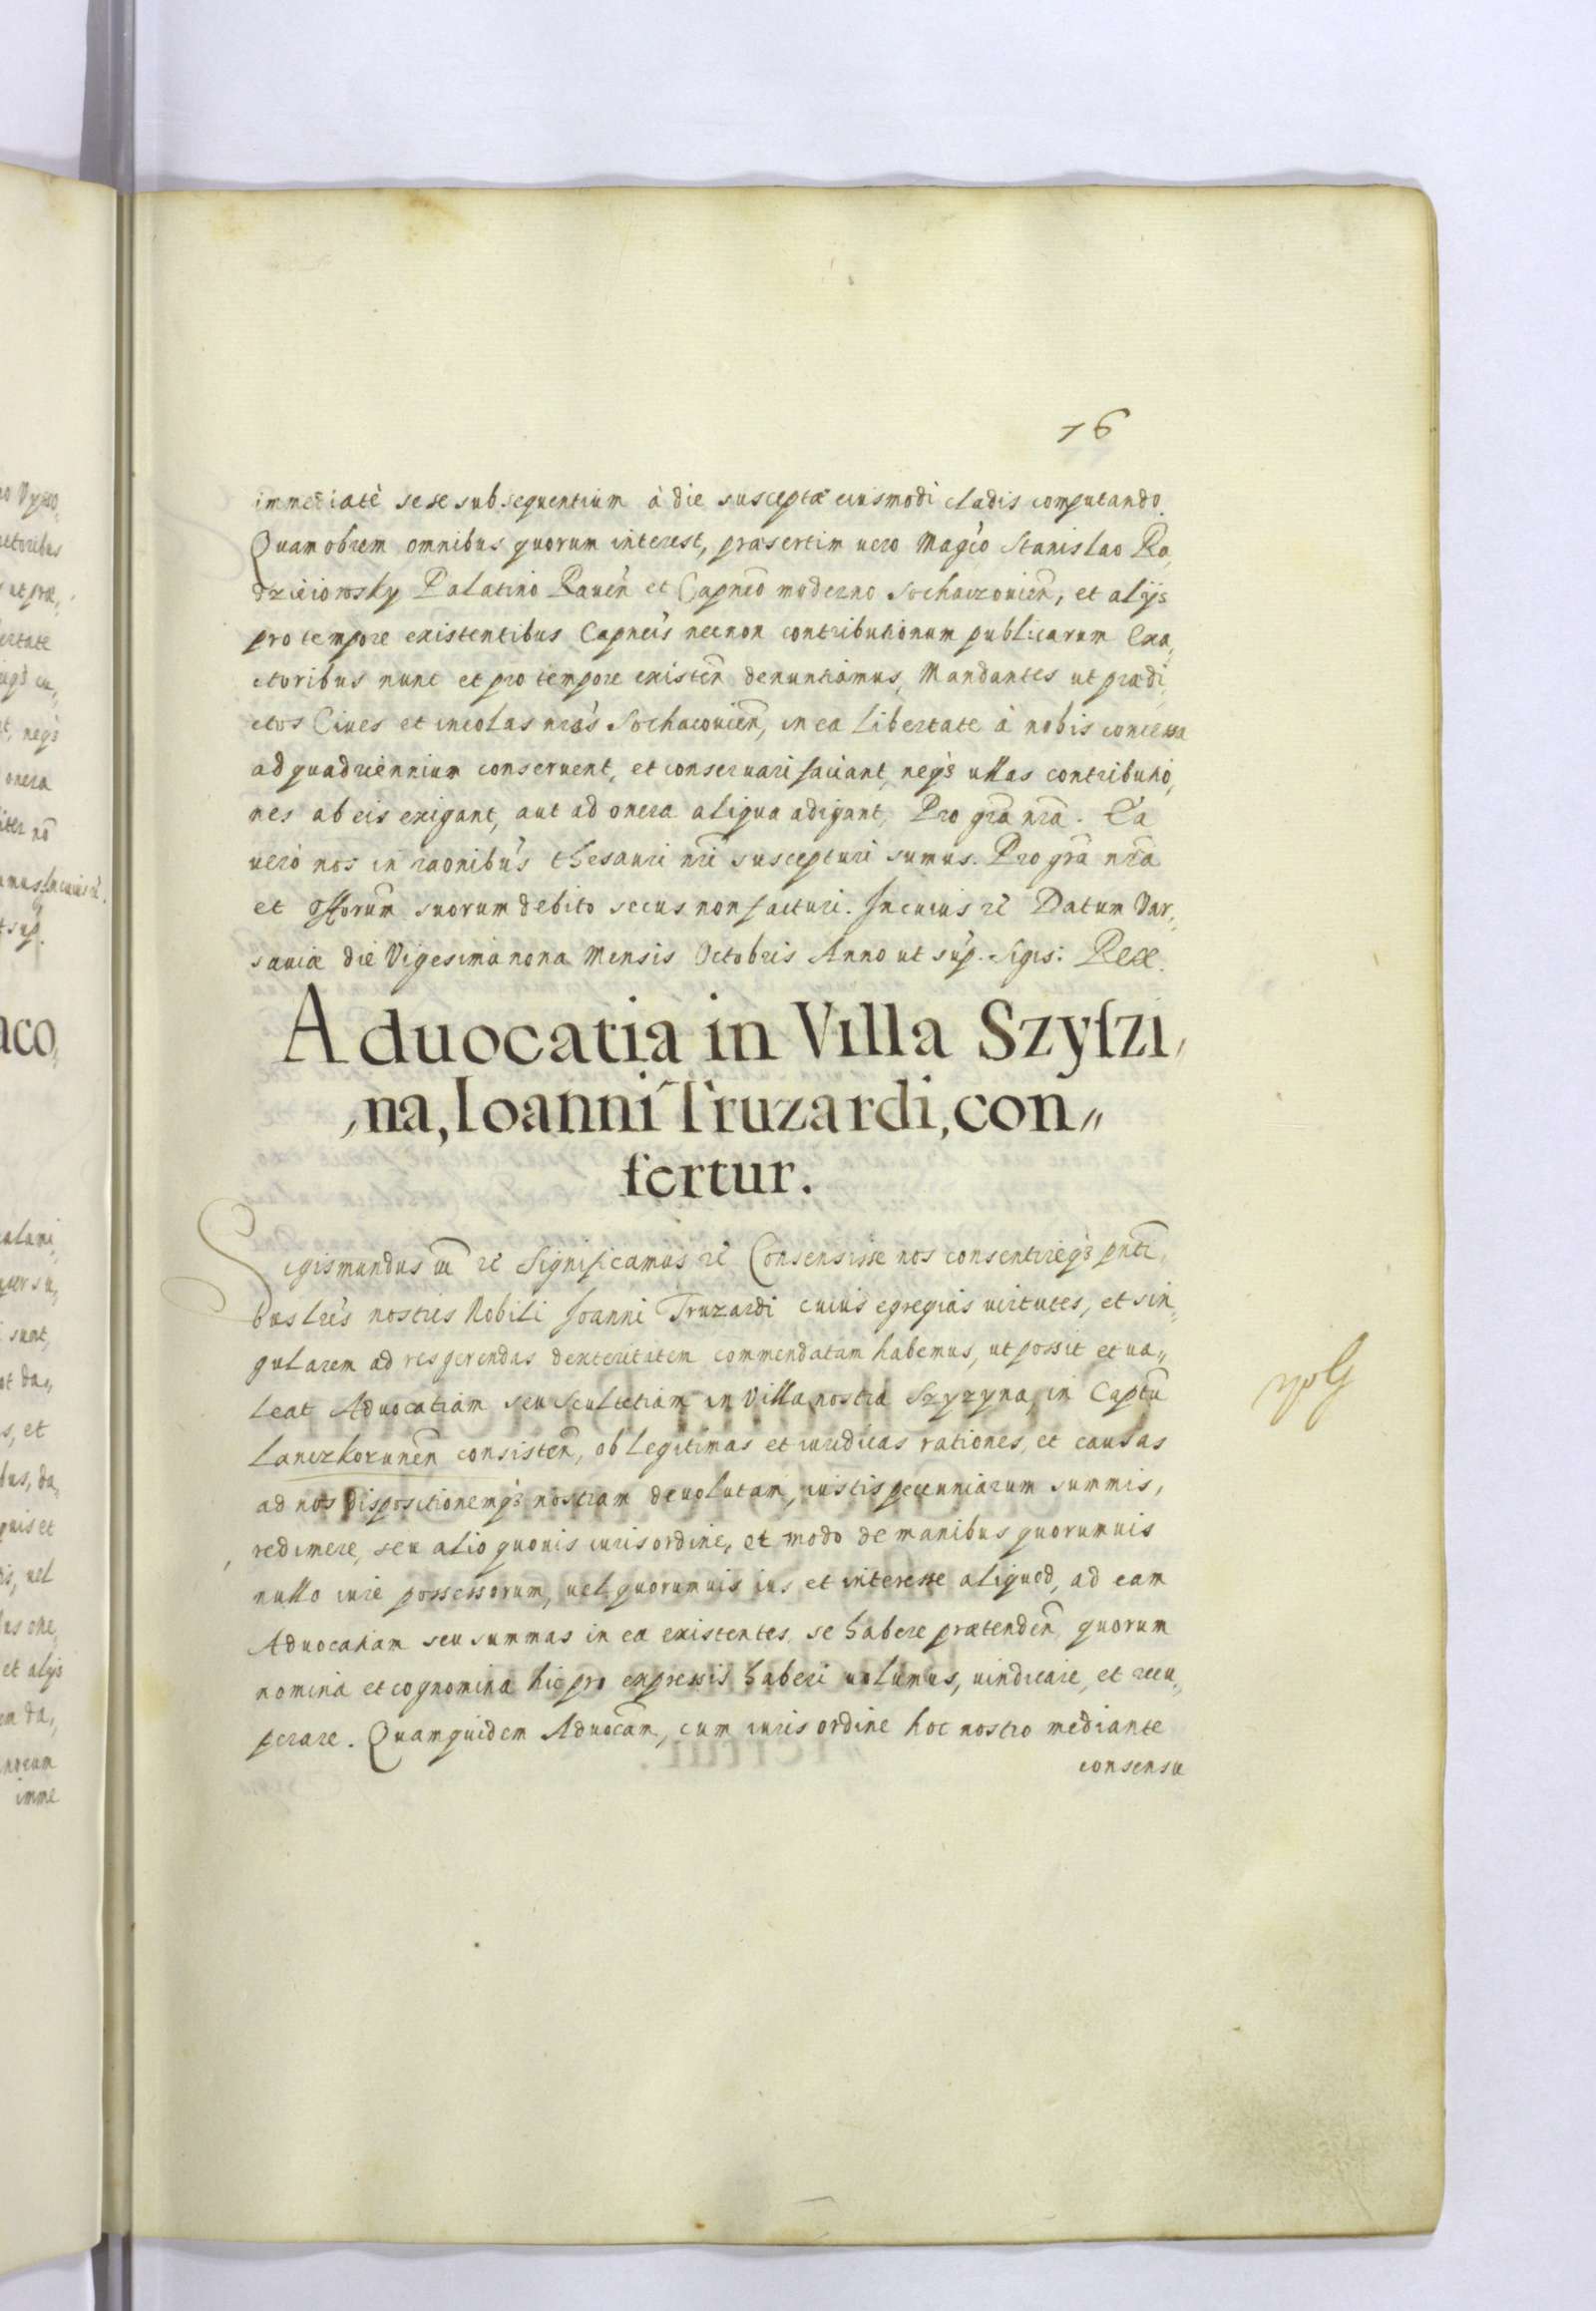 76
immediatè sese subsequentium à die susceptæ eiusmodi cladis computando.
Quamobrem omnibus quorum interest, præsertim uero Magco Stanislao Ra,
dzieiowsky Palatino Rauen et Capneo moderno Sochaczouien, et alijs
pro tempore existentibus Capneis necnon contributionum publicarum Exa,
ctoribus nunc et pro tempore existen denuntiamus, Mandantes ut prædi,
ctos Ciues et incolas nros Sochacouien, in ea libertate à nobis concessa
ad quadriennium conseruent, et conseruari faciant, neqз ullas contributio,
nes ab eis exigant, aut ad onera aliqua adigant, Pro gra nra. Ea
uerò nos in raonibus thesauri nri suscepturi sumus. Pro gra nra
et offorum suorum debito secus non facturi. In cuius rei Datum Var,
sauiæ die Vigesima nona Mensis Octobris Anno ut sup. Sigis: Rex.
Aduocatia in Villa Szyſzi,
,na, Ioanni Truzardi, con„
fertur.
Sigismundus III etc Significamus etc Consensisse nos consentireqз pnti,
bus lris nostris Nobili Joanni Truzardi cuius egregias uirtutes, et sin,
gularem ad res gerendas dexteritatem commendatam habemus, ut possit et ua„
leat Aduocatiam seu Scultetiam in Villa nostra Szyzyna, in Captu
Lanczkorunen consisten, ob legitimas et iuridicas rationes, et causas
ad nos dispositionemqз nostram deuolutam, iustis pecunniarum summis,
redimere, seu alio quouis iuris ordine, et modo de manibus quorumuis
nullo iure possessorum, uel quorumuis ius et interesse aliquod, ad eam
Aduocatiam seu summas in ea existentes, se habere prætenden, quorum
nomina et cognomina hic pro expressis haberi uolumus, uindicare, et recu„
perare. Quamquidem Aduocam, cum iuris ordine hoc nostro mediante
consensu